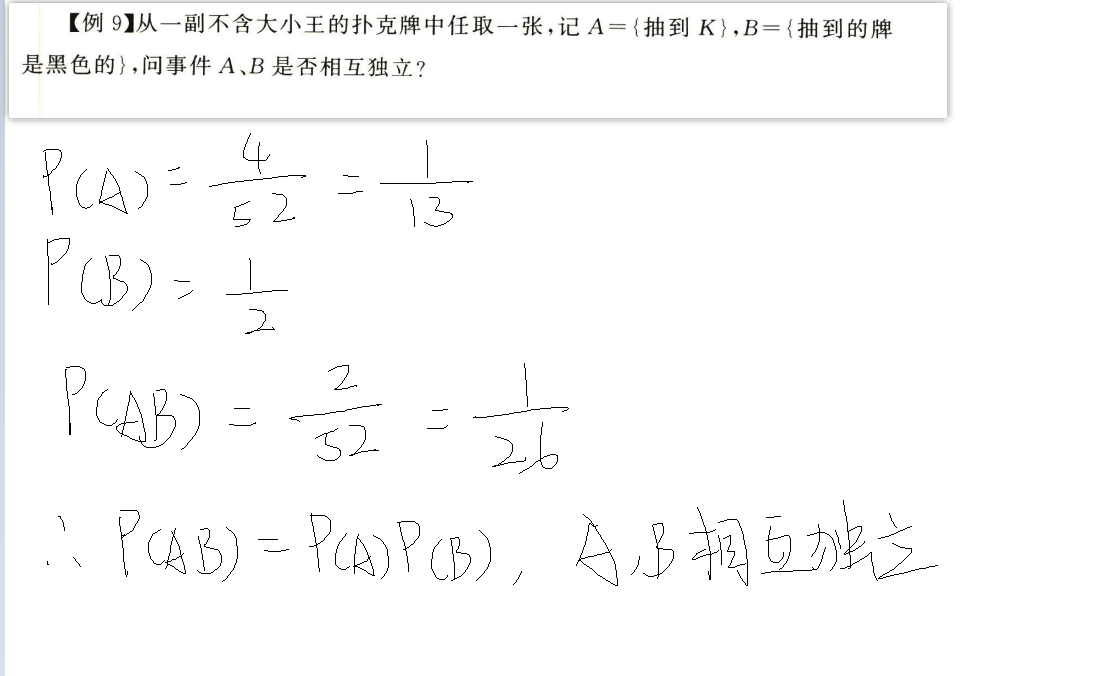 【例 9】从一副不含大小王的扑克牌中任取一张,记 A={抽到 K},B={抽到的牌
是黑色的},问事件 A、B 是否相互独立?
P(A) = 4/52 = 1/13
P(B) = 1/2
P(AB) = 2/52 = 1/26
∴ P(AB) = P(A)P(B), A,B 相互独立